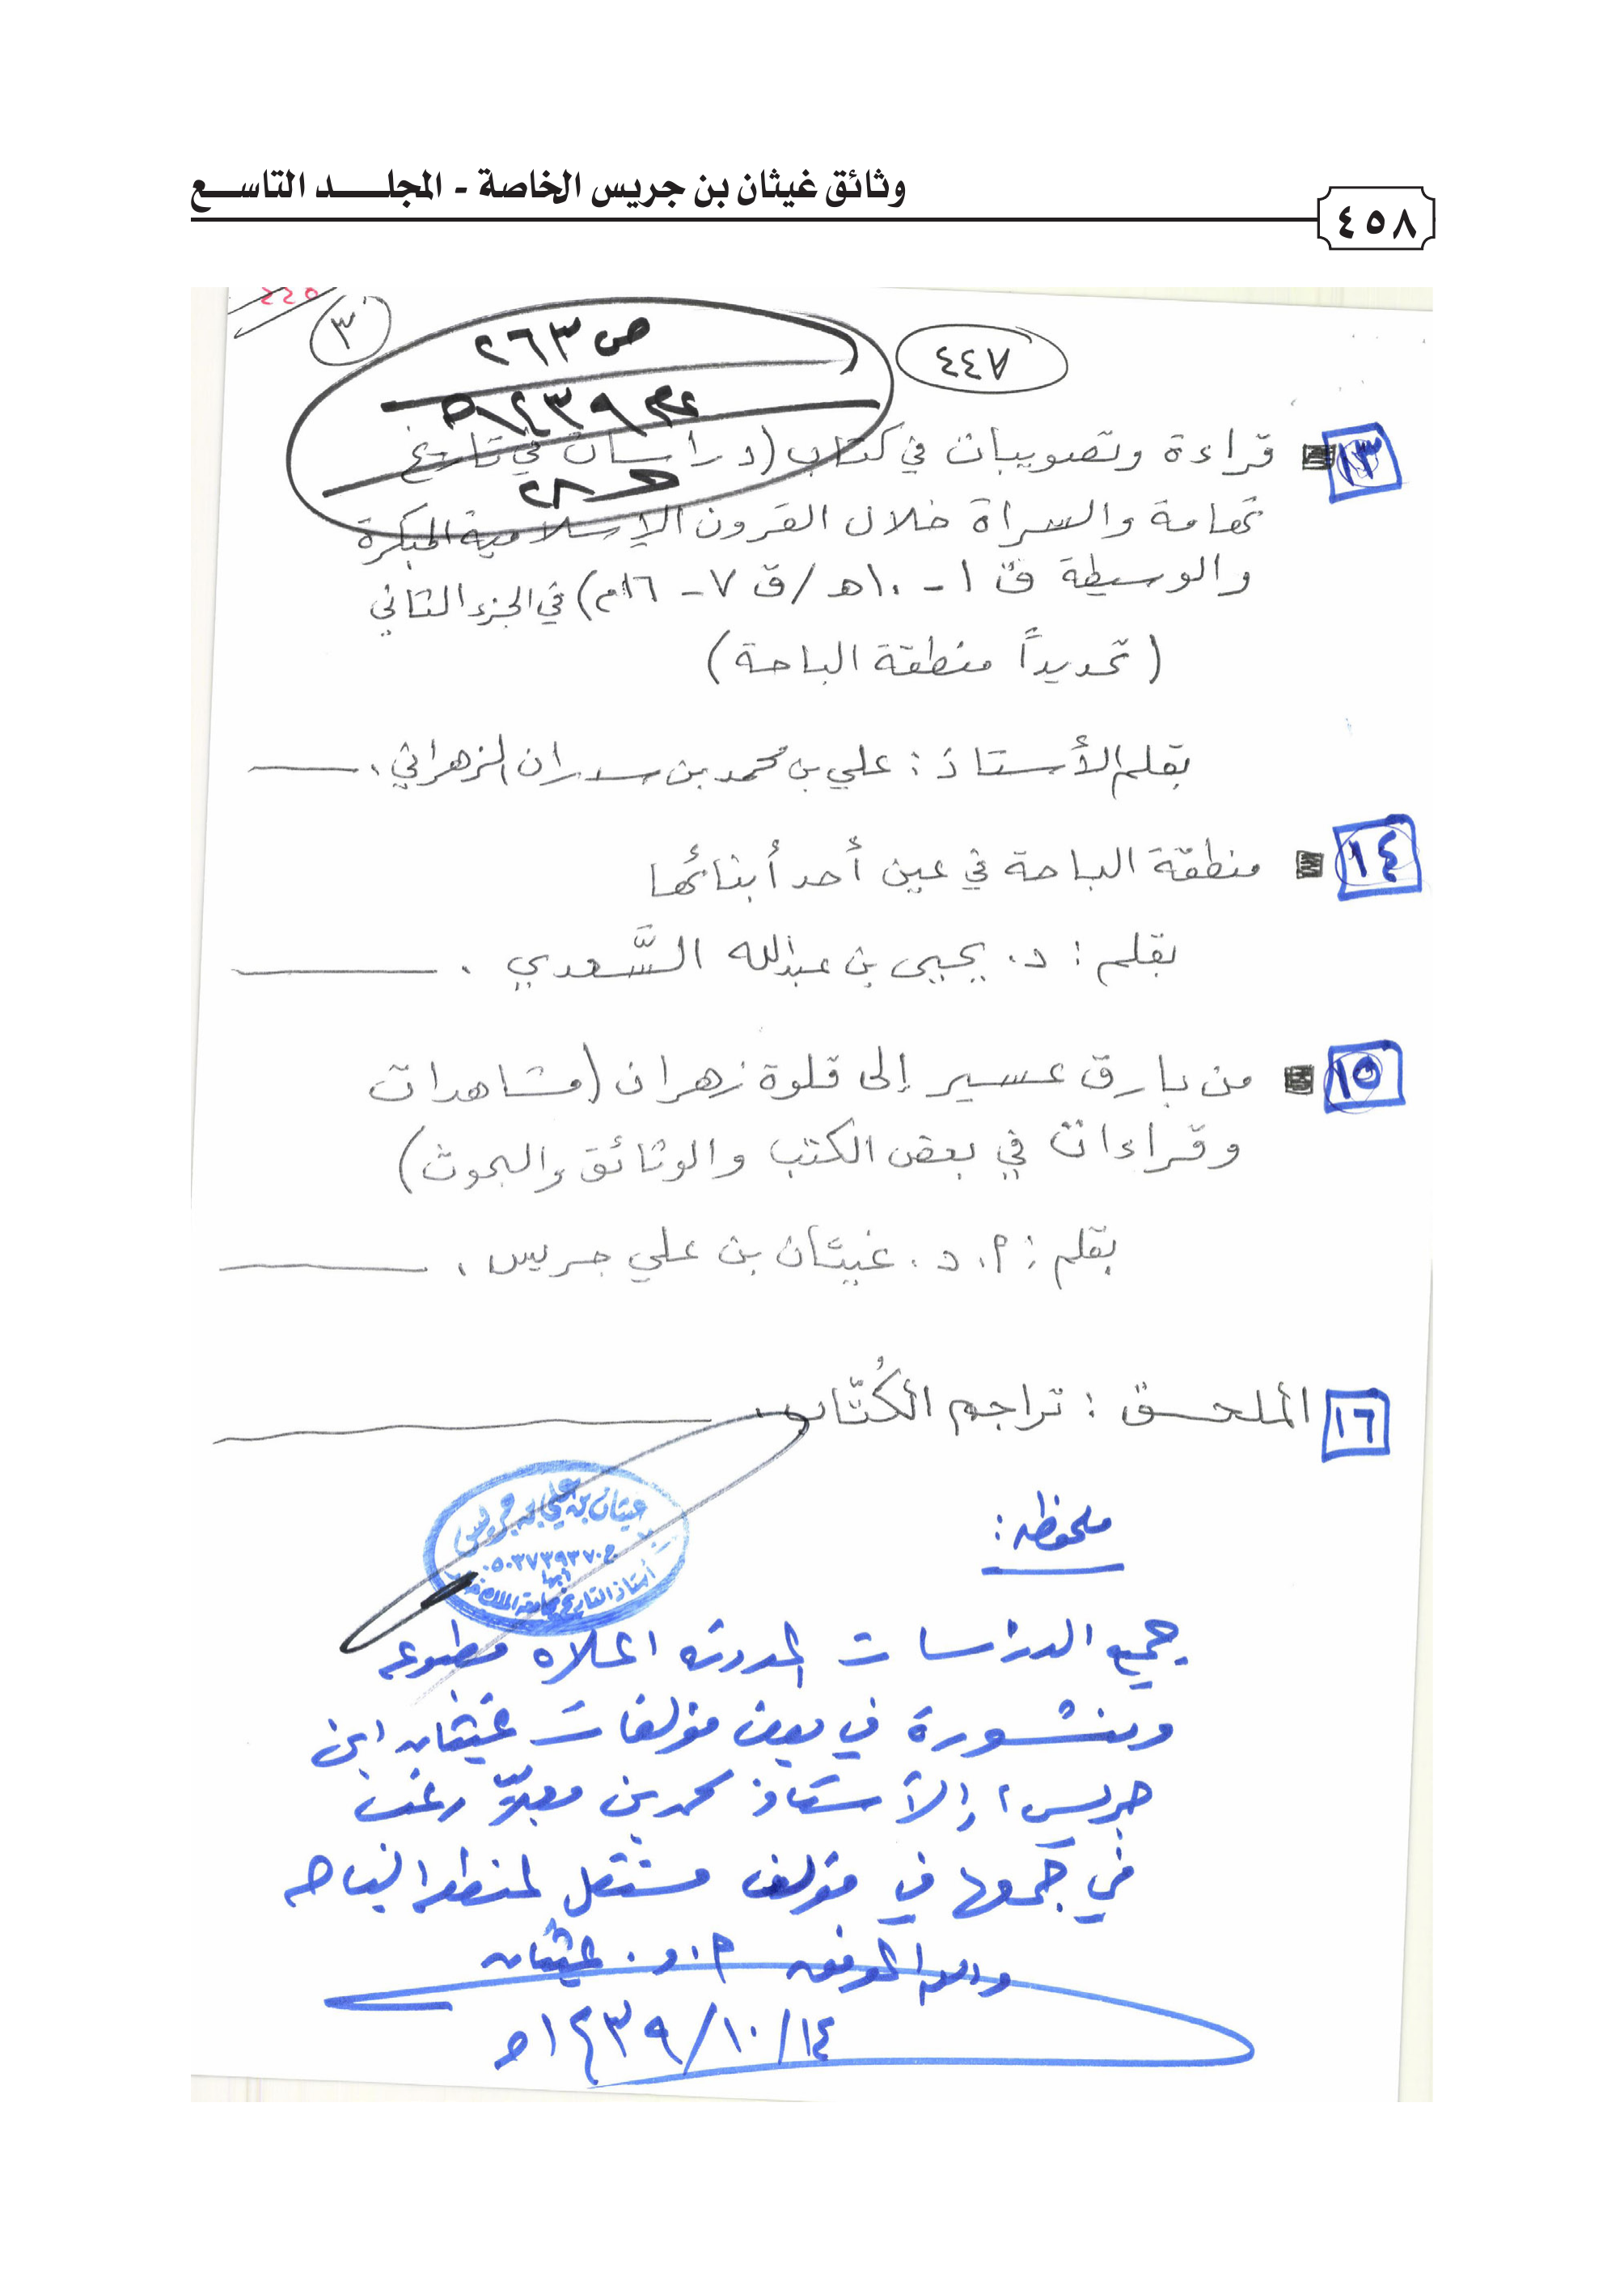 وثائق غيثان بن جريس الخاصة - المجلد التاسع
٤٥٨
٣
ص ٢٦٣
٤٤٧
١٣ قراءة وتصويبات في كتاب (دراسات في تاريخ
تهامة والسراة خلال القرون الإسلامية المبكرة
والوسيطة ق ١ - ١٠هـ / ق ٧ - ١٦م) في الجزء الثاني
(تحديداً منطقة الباحة)
بقلم الأستاذ : علي بن محمد بن سدران الزهراني .
١٤ منطقة الباحة في عين أحد أبنائها
بقلم : د. يحيى بن عبدالله السَّعدي .
١٥ من بارق عسير إلى قلوة زهران (مشاهدات
وقراءات في بعض الكتب والوثائق والبحوث)
بقلم : أ. د. غيثان بن علي جريس .
١٦ الملحق : تراجم الكُتّاب .
غيثان بن علي بن جريس
ج ٠٥٠٣٧٣٩٣٧٠
أبها
أستاذ التاريخ بجامعة الملك خالد
ملحوظة :
جميع الدراسات المدونة اعلاه مطبوعة
ومنشورة في بعض مؤلفات غيثان ابن
جريس، والأستاذ محمد بن معبر رغب
في جمعها في مؤلف مستقل لمنطقة الباحة
والله الموفق أ. د. غيثان
١٤/١٠/١٤٣٩هـ